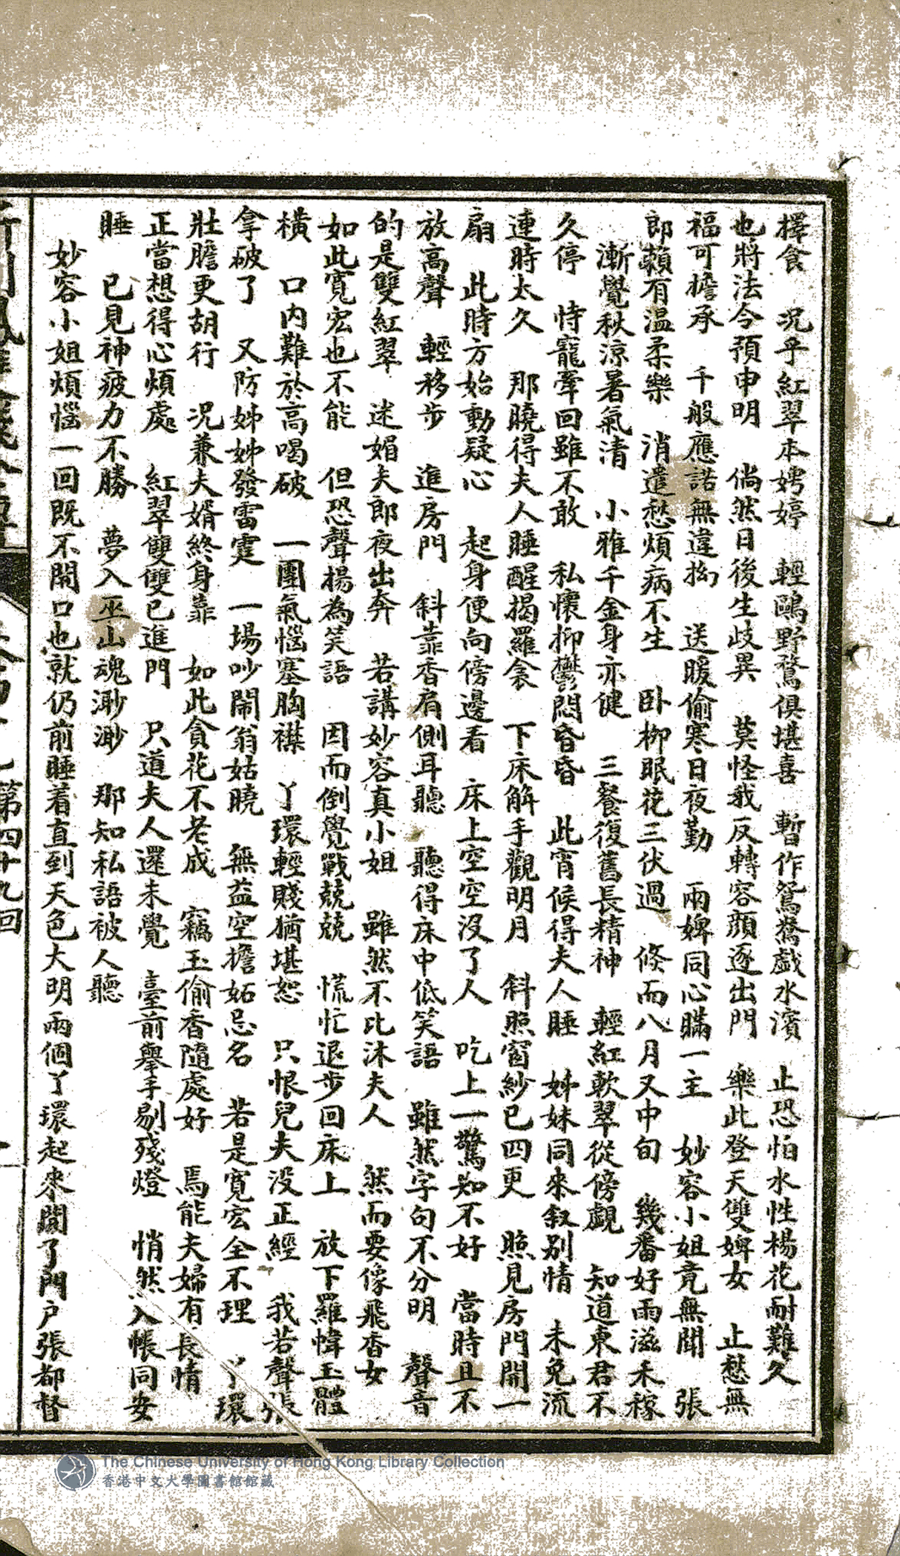 擇食　况乎紅翠本娉婷　輕鷗野鶩俱堪喜　暫作鴛鴦戲水濱　止恐怕水性楊花耐難久
也將法令預申明　倘然日後生歧異　莫怪我反轉容顏逐出門　樂此登天雙婢女　止愁無
福可擔承　千般應諾無違拗　送暖偷寒日夜勤　兩婢同心瞞一主　妙容小姐竟無聞　張
郎賴有温柔樂　消遣愁煩病不生　卧柳眠花三伏過　倏而八月又中旬　幾番好雨滋禾稼
漸覺秋涼暑氣清　小雅千金身亦健　三餐復舊長精神　輕紅軟翠從傍觑　知道東君不
久停　恃寵牽回雖不敢　私懷抑鬱悶昏昏　此宵候得夫人睡　姊妹同來叙别情　未免流
連時太久　那曉得夫人睡醒揭羅衾　下床解手觀明月　斜照窗紗已四更　照見房門開一
扇　此時方始動疑心　起身便向傍邊看　床上空空没了人　吃上一驚知不好　當時且不
放高聲　輕移步　進房門　斜靠香肩側耳聽　聽得床中低笑語　雖然字句不分明　聲音
的是雙紅翠　迷媚夫郎夜出奔　若講妙容真小姐　雖然不比沐夫人　然而要像飛香女
如此寬宏也不能　但恐聲揚為笑語　因而倒覺戰兢兢　慌忙退步回床上　放下羅幃玉體
橫　口内難於高喝破　一團氣惱塞胸襟　丫環輕賤猶堪恕　只恨兒夫没正經　我若聲張
拿破了　又防姊姊發雷霆　一場吵鬧翁姑曉　無益空擔妬忌名　若是寬宏全不理　丫環
壯膽更胡行　况兼夫婿終身靠　如此貪花不老成　竊玉偷香隨處好　焉能夫婦有長情
正當想得心煩處　紅翠雙雙已進門　只道夫人還未覺　臺前舉手剔殘燈　悄然入帳同安
睡　已見神疲力不勝　夢入巫山魂渺渺　那知私語被人聽
妙容小姐煩惱一回既不開口也就仍前睡着直到天色大明兩個丫環起來開了門户張都督
第四十九回
The Chinese University of Hong Kong Library Collection
香港中文大學圖書館館藏